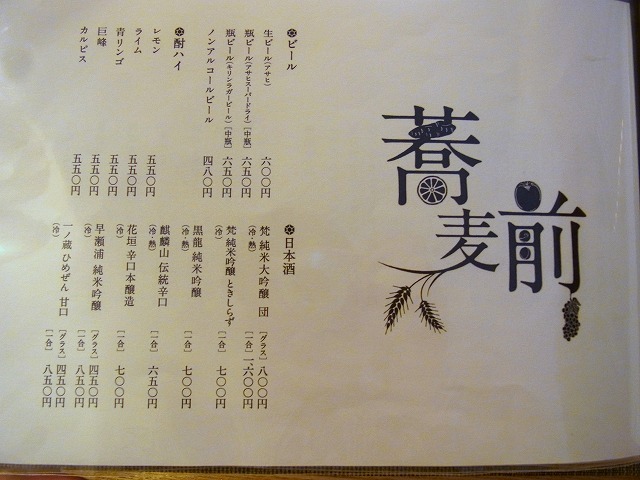 蕎麦前
❂ビール
生ビール(アサヒ) 六〇〇円
瓶ビール(アサヒスーパードライ)[中瓶] 六五〇円
瓶ビール(キリンラガービール)[中瓶] 六五〇円
ノンアルコールビール 四八〇円
❂酎ハイ
レモン 五五〇円
ライム 五五〇円
青リンゴ 五五〇円
巨峰 五五〇円
カルピス 五五〇円
❂日本酒
梵 純米大吟醸 団 [グラス] 八〇〇円
(冷) [一合] 一、六〇〇円
梵 純米吟醸 ときしらず
(冷) [一合] 七〇〇円
黒龍 純米吟醸
(冷・熱) [一合] 七〇〇円
麒麟山 伝統辛口
(冷・熱) [一合] 六五〇円
花垣 辛口本醸造
(冷) [一合] 七〇〇円
早瀬浦 純米吟醸 [グラス] 四五〇円
(冷) [一合] 八五〇円
一ノ蔵 ひめぜん 甘口 [グラス] 四五〇円
(冷) [一合] 八五〇円